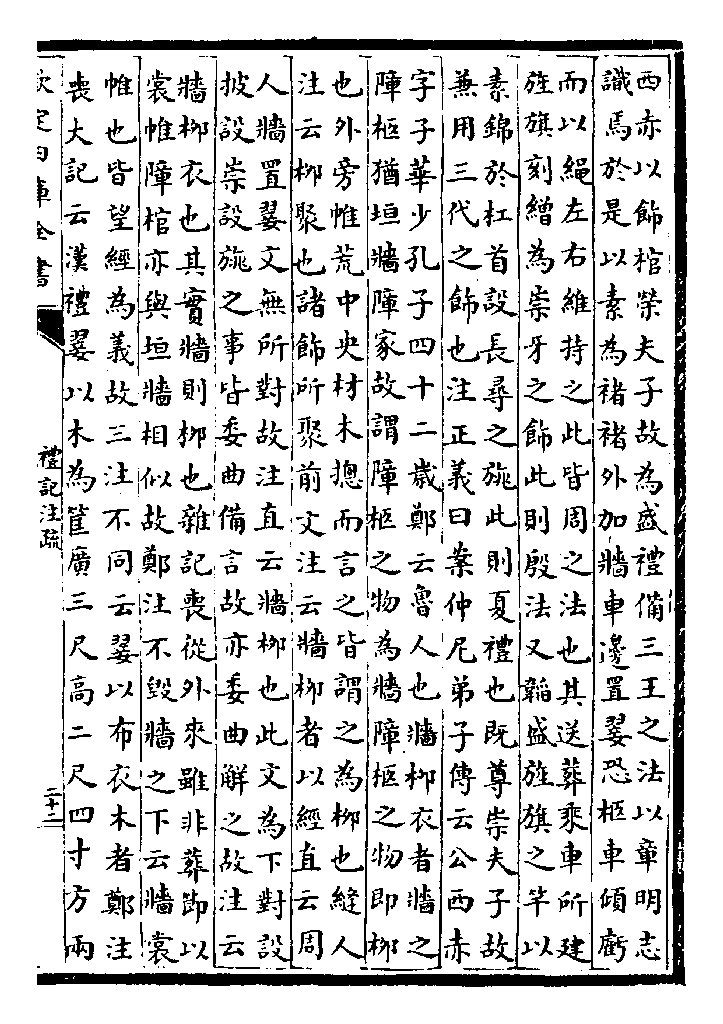 西赤以飾棺榮夫子故為盛禮備三王之法以章明志
識焉於是以素為褚褚外加牆車邊置翣恐柩車傾虧
而以繩左右維持之此皆周之法也其送葬乘車所建
旌旗刻繒為崇牙之飾此則殷法又韜盛旌旗之竿以
素錦於杠首設長尋之旐此則夏禮也既尊崇夫子故
兼用三代之飾也注正義曰案仲尼弟子傳云公西赤
字子華少孔子四十二歲鄭云魯人也牆柳衣者牆之
障柩猶垣牆障家故謂障柩之物為牆障柩之物即柳
也外旁帷荒中央材木摠而言之皆謂之為柳也縫人
注云柳聚也諸飾所聚前文注云牆柳者以經直云周
人牆置翣文無所對故注直云牆柳也此文為下對設
披設崇設旐之事皆委曲備言故亦委曲解之故注云
牆柳衣也其實牆則柳也雜記喪從外來雖非葬節以
裳帷障棺亦與垣牆相似故鄭注不毀牆之下云牆裳
帷也皆望經為義故三注不同云翣以布衣木者鄭注
喪大記云漢禮翣以木為筐廣三尺高二尺四寸方兩
欽定四庫全書
禮記注疏
二十二